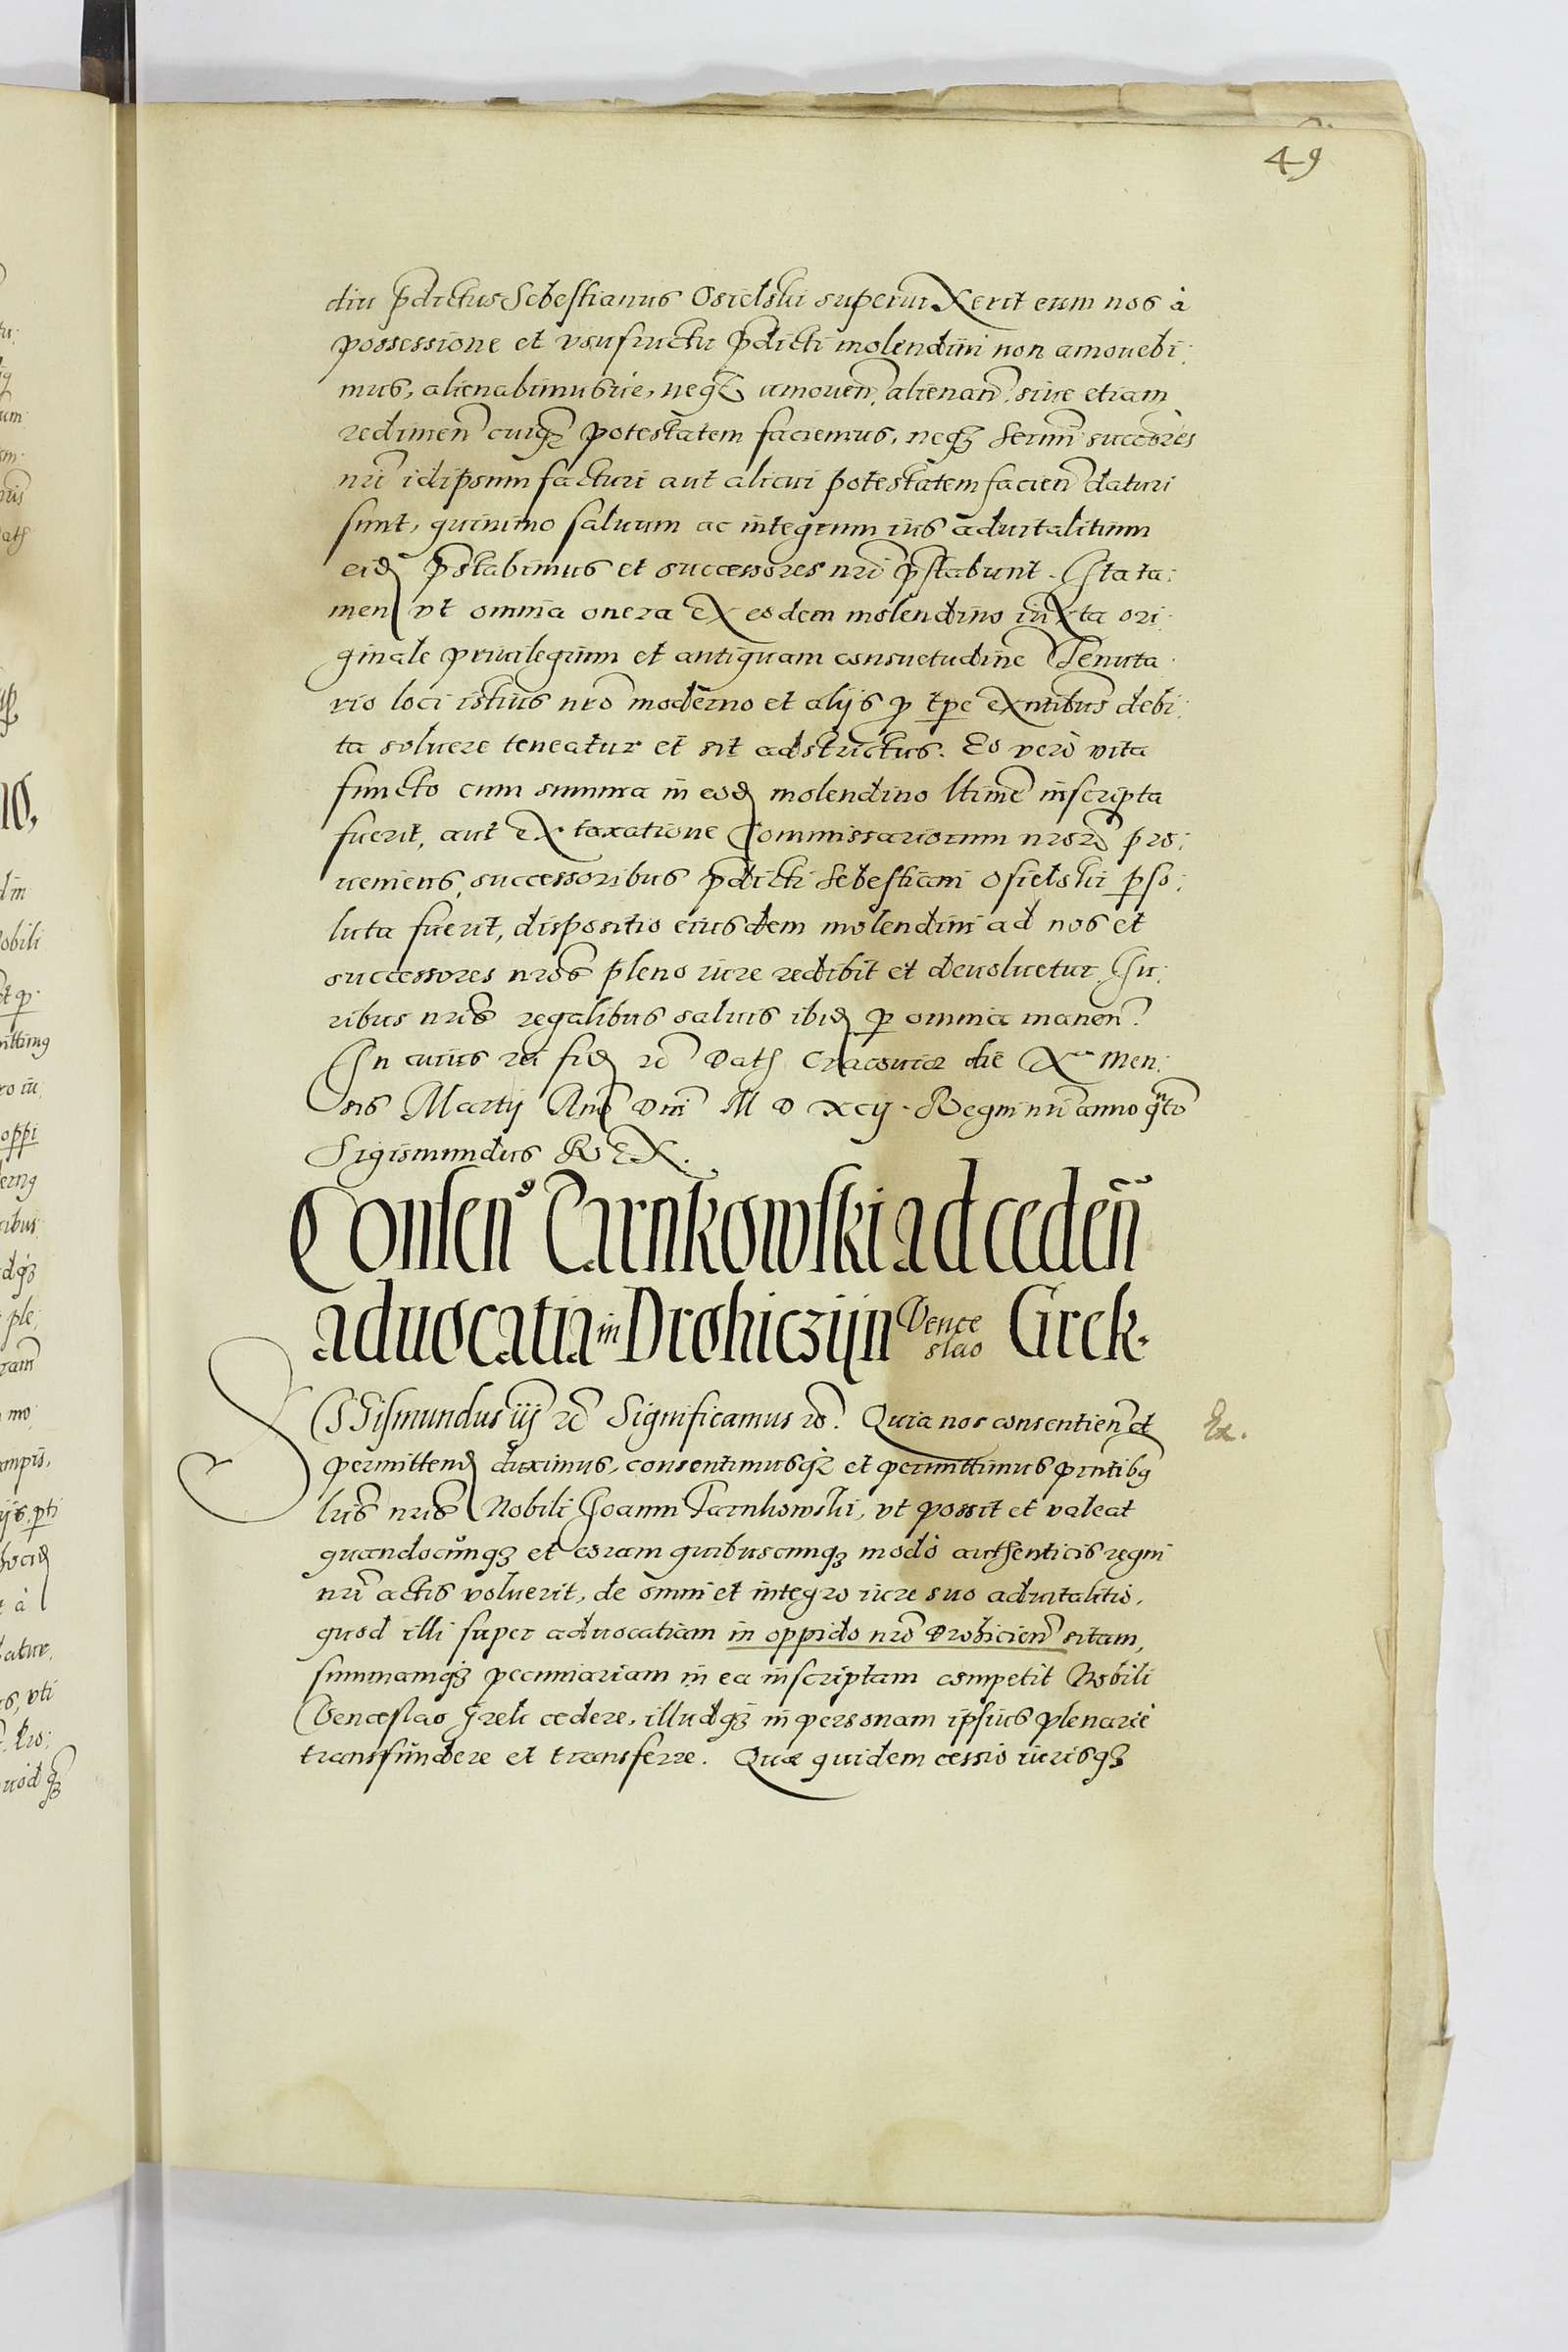 49
diu p̄dictus Sebestianus Osielski superuixerit eum nos à
possessione et vsufructu p̄dicti molendini non amouebi:
mus, alienabimusúe, neqꝫ amouen̄. alienan̄. siue etiam
redimen̄ cuiqꝫ potestatem faciemus, neqꝫ Serm̄i succ̄ores
nr̄i idipsum facturi aut alicui potestatem facien̄ daturi
sunt, quinimo saluum ac integrum ius aduitalitium
eid̄ p̄stabimus et successores nr̄i p̄stabunt. Ita ta:
men vt omnia onera ex eodem molendino iuxta ori:
ginale priuilegium et antiquam consuetudinē Tenuta:
rio loci istius nr̄o moderno et alijs ꝓ tp̄e exn̄tibus debi:
ta soluere teneatur et sit adstrictus. Eo verò vita
functo cum summa in eod̄ molendino ltimē inscripta
fuerit, aut ex taxatione Commissariorum nror̄ pro:
ueniens, successoribus p̄dicti Sebestiani Osielski ꝑso:
luta fuerit, dispositio eiusdem molendini ad nos et
successores nr̄os pleno iure redibit et deuoluetur. Iu:
ribus nr̄is regalibus saluis ibid̄ ꝑ omnia manen̄.
In cuius rei fid̄ rc̄ Dat Cracouiæ die Xᵃ Men:
sis Martij Anō Dnī M D xcij. Regni nr̄i anno qn̄to
Sigismundus REX.
Consen⁹ Tarnkowski ad ceden̄
aduocatia in Drohiczijn Vence
slao Grek.
SIGismundus iij rc̄ Significamus rc̄. Quia nos consentien̄ et
permittend̄ duximus, consentimusqꝫ et permittimus pn̄tibꝫ
lr̄is nr̄is Nobili Joanni Tarnkowski, vt possit et valeat
quandocunqꝫ et coram quibuscunqꝫ modò authenticis regni
nr̄i actis voluerit, de omni et integro iure suo aduitalitio,
quod illi super aduocatiam in oppido nr̄o Drohicien̄ sitam,
summamqꝫ pecuniariam in ea inscriptam competit Nobili
Venceslao Grek cedere, illudqꝫ in personam ipsius plenariè
transfundere et transferre. Quæ quidem cessio iurisqꝫ
Ex.